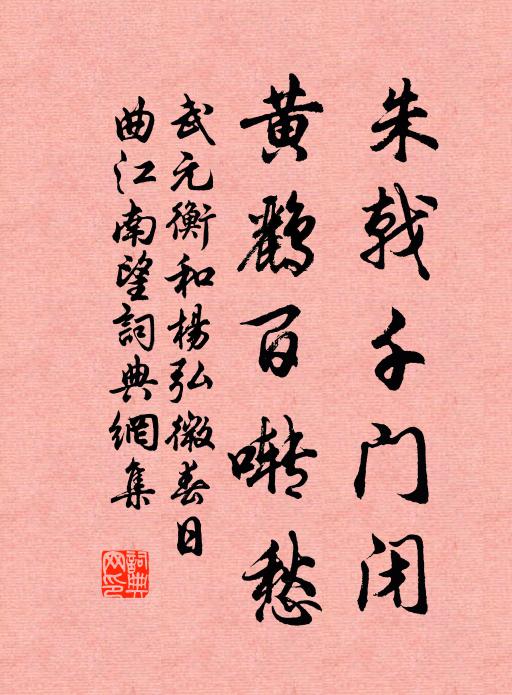 朱戟千门闭
黄鸝百囀愁
武元衡和楊弘微春日
曲江南望詞典網集
詞典
网印